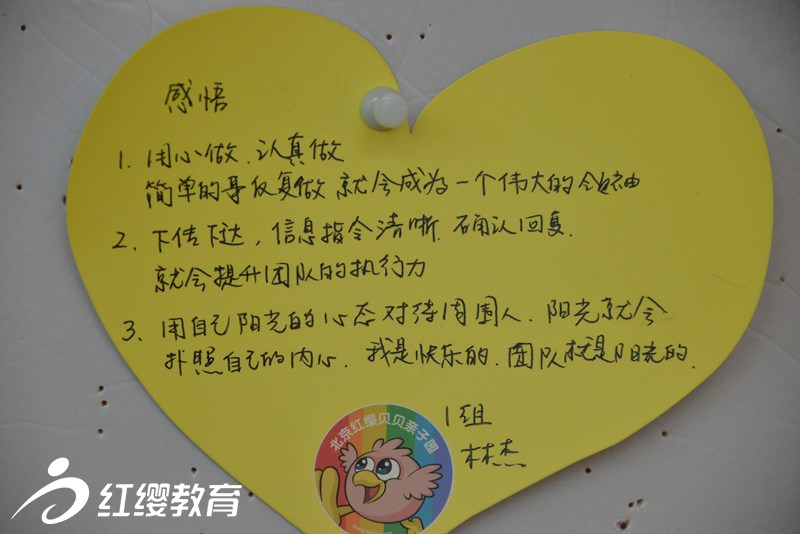 感悟
1. 用心做、认真做
简单的事反复做 就会成为一个伟大的领袖
2. 下传下达，信息指令清晰、确认回复、
就会提升团队的执行力
3. 用自己阳光的心态对待周围人、阳光就会
扑照自己的内心、我是快乐的、团队就是阳光的、
1组
林杰
北京红缨贝贝亲子园
红缨教育